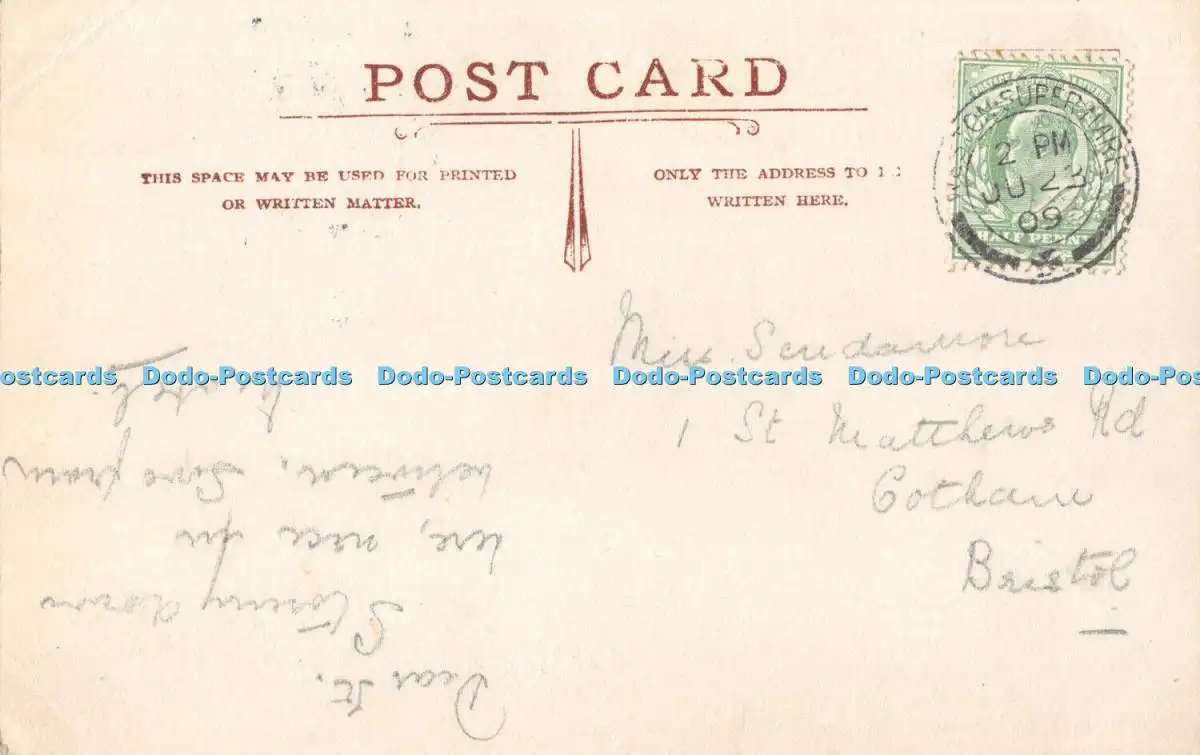 POST CARD
THIS SPACE MAY BE USED FOR PRINTED
OR WRITTEN MATTER.
ONLY THE ADDRESS TO
WRITTEN HERE.
POSTAGE
WESTON-SUPER-MARE
2 PM
JU 23
09
HALF PENNY
Miss. Scudamore
1 St Matthews Rd
Cotham
Bristol
ostcards Dodo-Postcards Dodo-Postcards Dodo-Postcards Dodo-Postcards Dodo-Postc
Dear
Stormy down
here, nice in
between, Love from